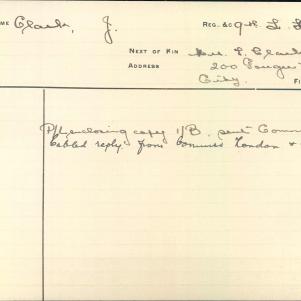 ME Clark, J. REG. & C 9th L.
NEXT OF KIN Mrs. E. Clark
ADDRESS 200
City.
FI
P/L enclosing copy 1/B. sent Comm
Cabled reply from Commrs London &